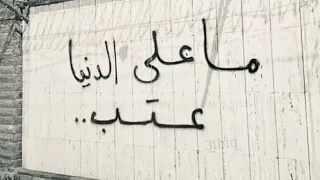 ما على الدنيا
عتب..